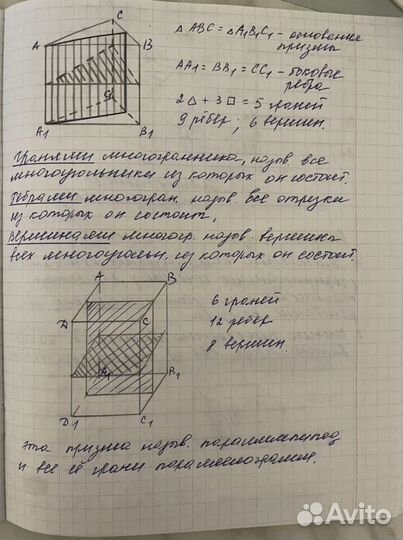 C
A
B
C1
A1
B1
△ ABC = △ A1B1C1 - основание
призмы
AA1 = BB1 = CC1 - боковые
рёбра
2△ + 3□ = 5 граней
9 рёбер ; 6 вершин.
Гранями многогранника, назыв. все
многоугольники из которых он состоит.
Ребрами многогран. назыв. все отрезки
из которых он состоит,
Вершинами многогр. назыв. вершины
всех многоугольн. из которых он состоит.
A
B
D
C
A1
B1
D1
C1
6 граней
12 рёбер
8 вершин.
Эта призма назыв. параллелепипед
и все её грани параллелограмм.
Avito